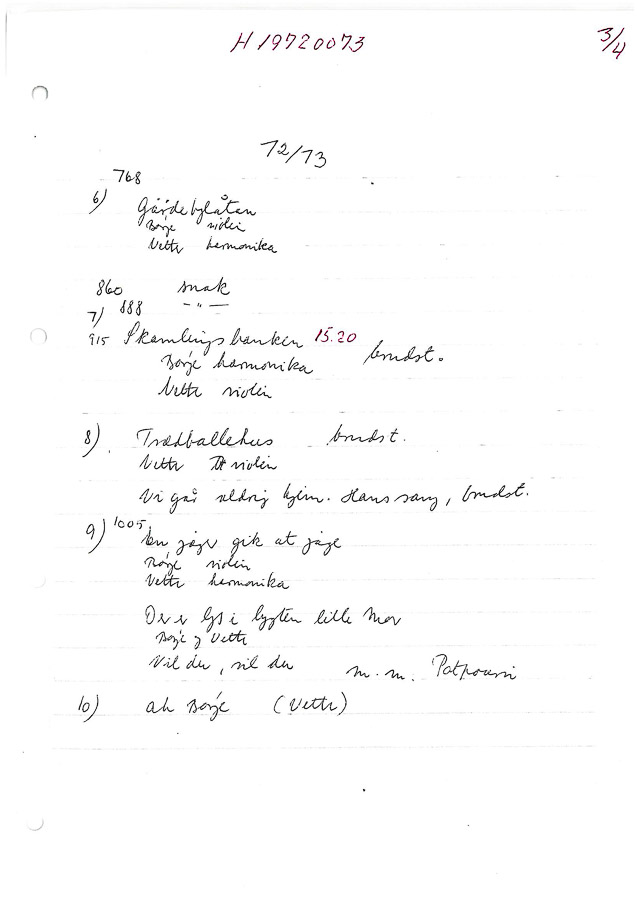 H 19720073
3/4
72/73
768
6) Gärdebylåten
Börje violin
Vette harmonika
860 snak
7) 888 - " -
915 Skamlingsbanken 15.20 brudst.
Börje harmonika
Vette violin
8) Trædballehus brudst.
Vette violin
Vi går aldrig hjem. Hans sang, brudst.
9) 1005
En jæger gik at jage
Börje violin
Vette harmonika
Der er lys i lygten lille mor
Börje og Vette
Vil du, vil du m.m. Potpourri
10) ah Börje (Vette)